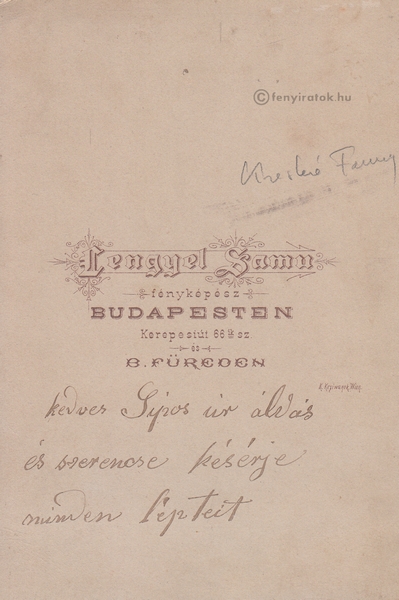 ©fenyiratok.hu
Fanny
Lengyel Samu
fényképész
BUDAPESTEN
Kerepesiút 66ik sz.
és
B. FÜREDEN
kedves Sipos úr áldás
és szerencse késérje
minden lépteit